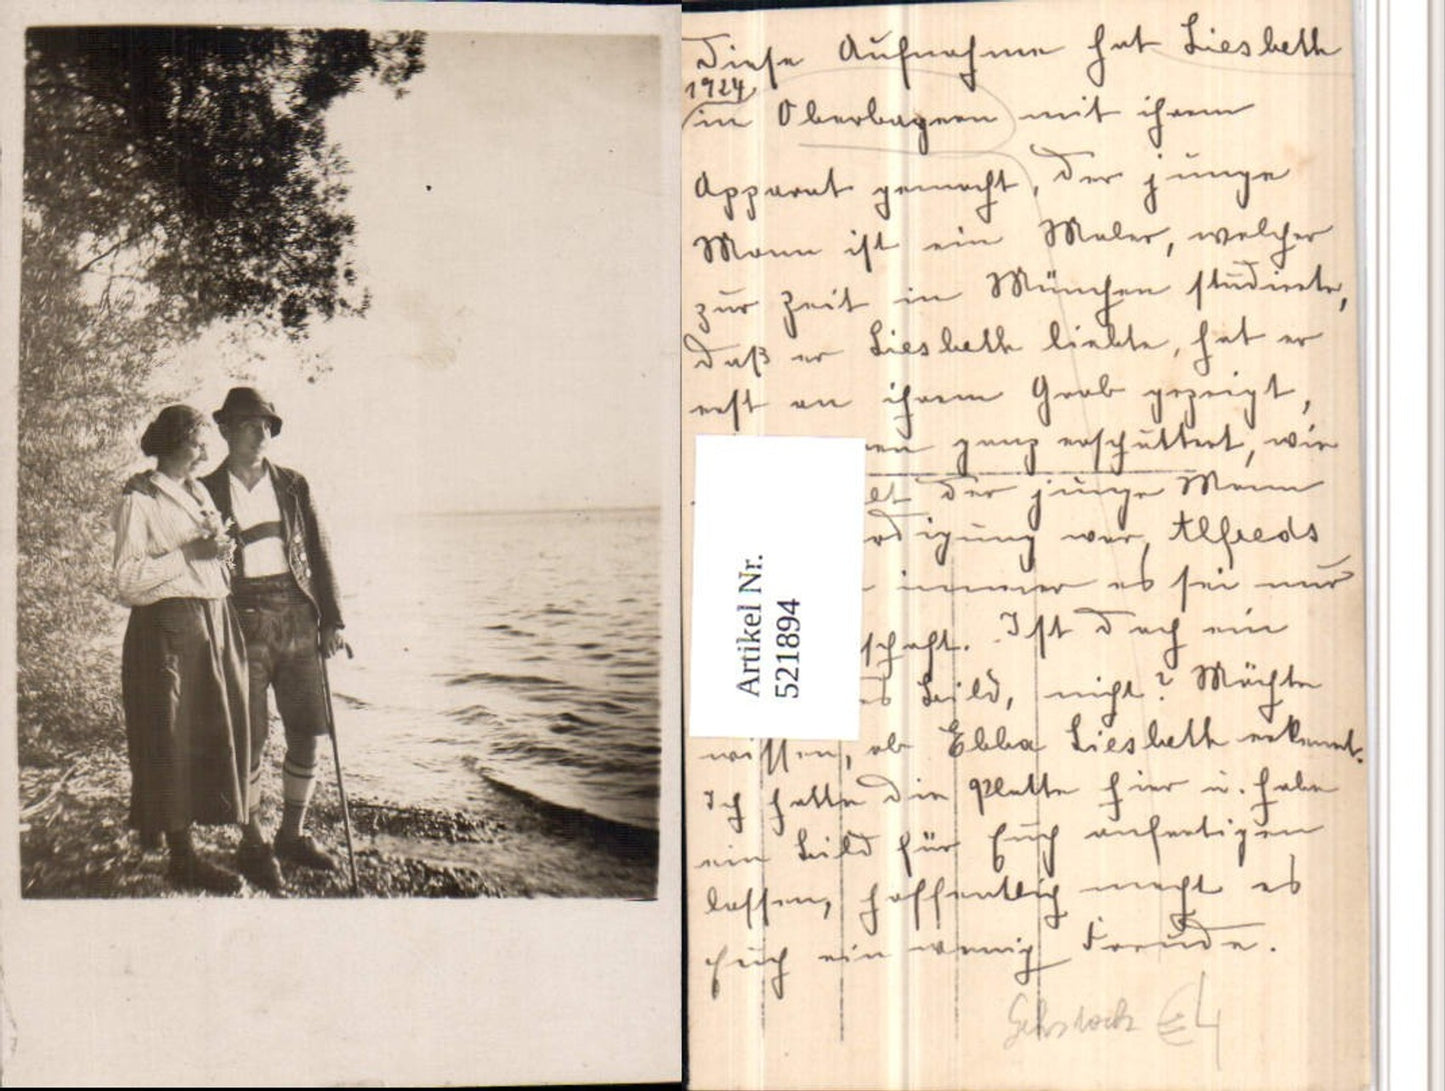 Diese Aufnahme hat Liesbeth
1924
in Oberbayern mit ihrem
Apparat gemacht, der junge
Mann ist ein Maler, welcher
zur Zeit in München studierte,
daß er Liesbeth liebte, hat er
erst an ihrem Grab gezeigt,
ganz erschüttert, wie
der junge Mann
war, Alfreds
immer es sei nur
schaft. Ist doch ein
Bild, nicht? Möchte
wissen, ob Ebba Liesbeth erkennt.
Ich hatte die Platte hier u. habe
ein Bild für Euch anfertigen
lassen, hoffentlich macht es
Euch ein wenig Freude.
Gehstock €4
Artikel Nr.
521894